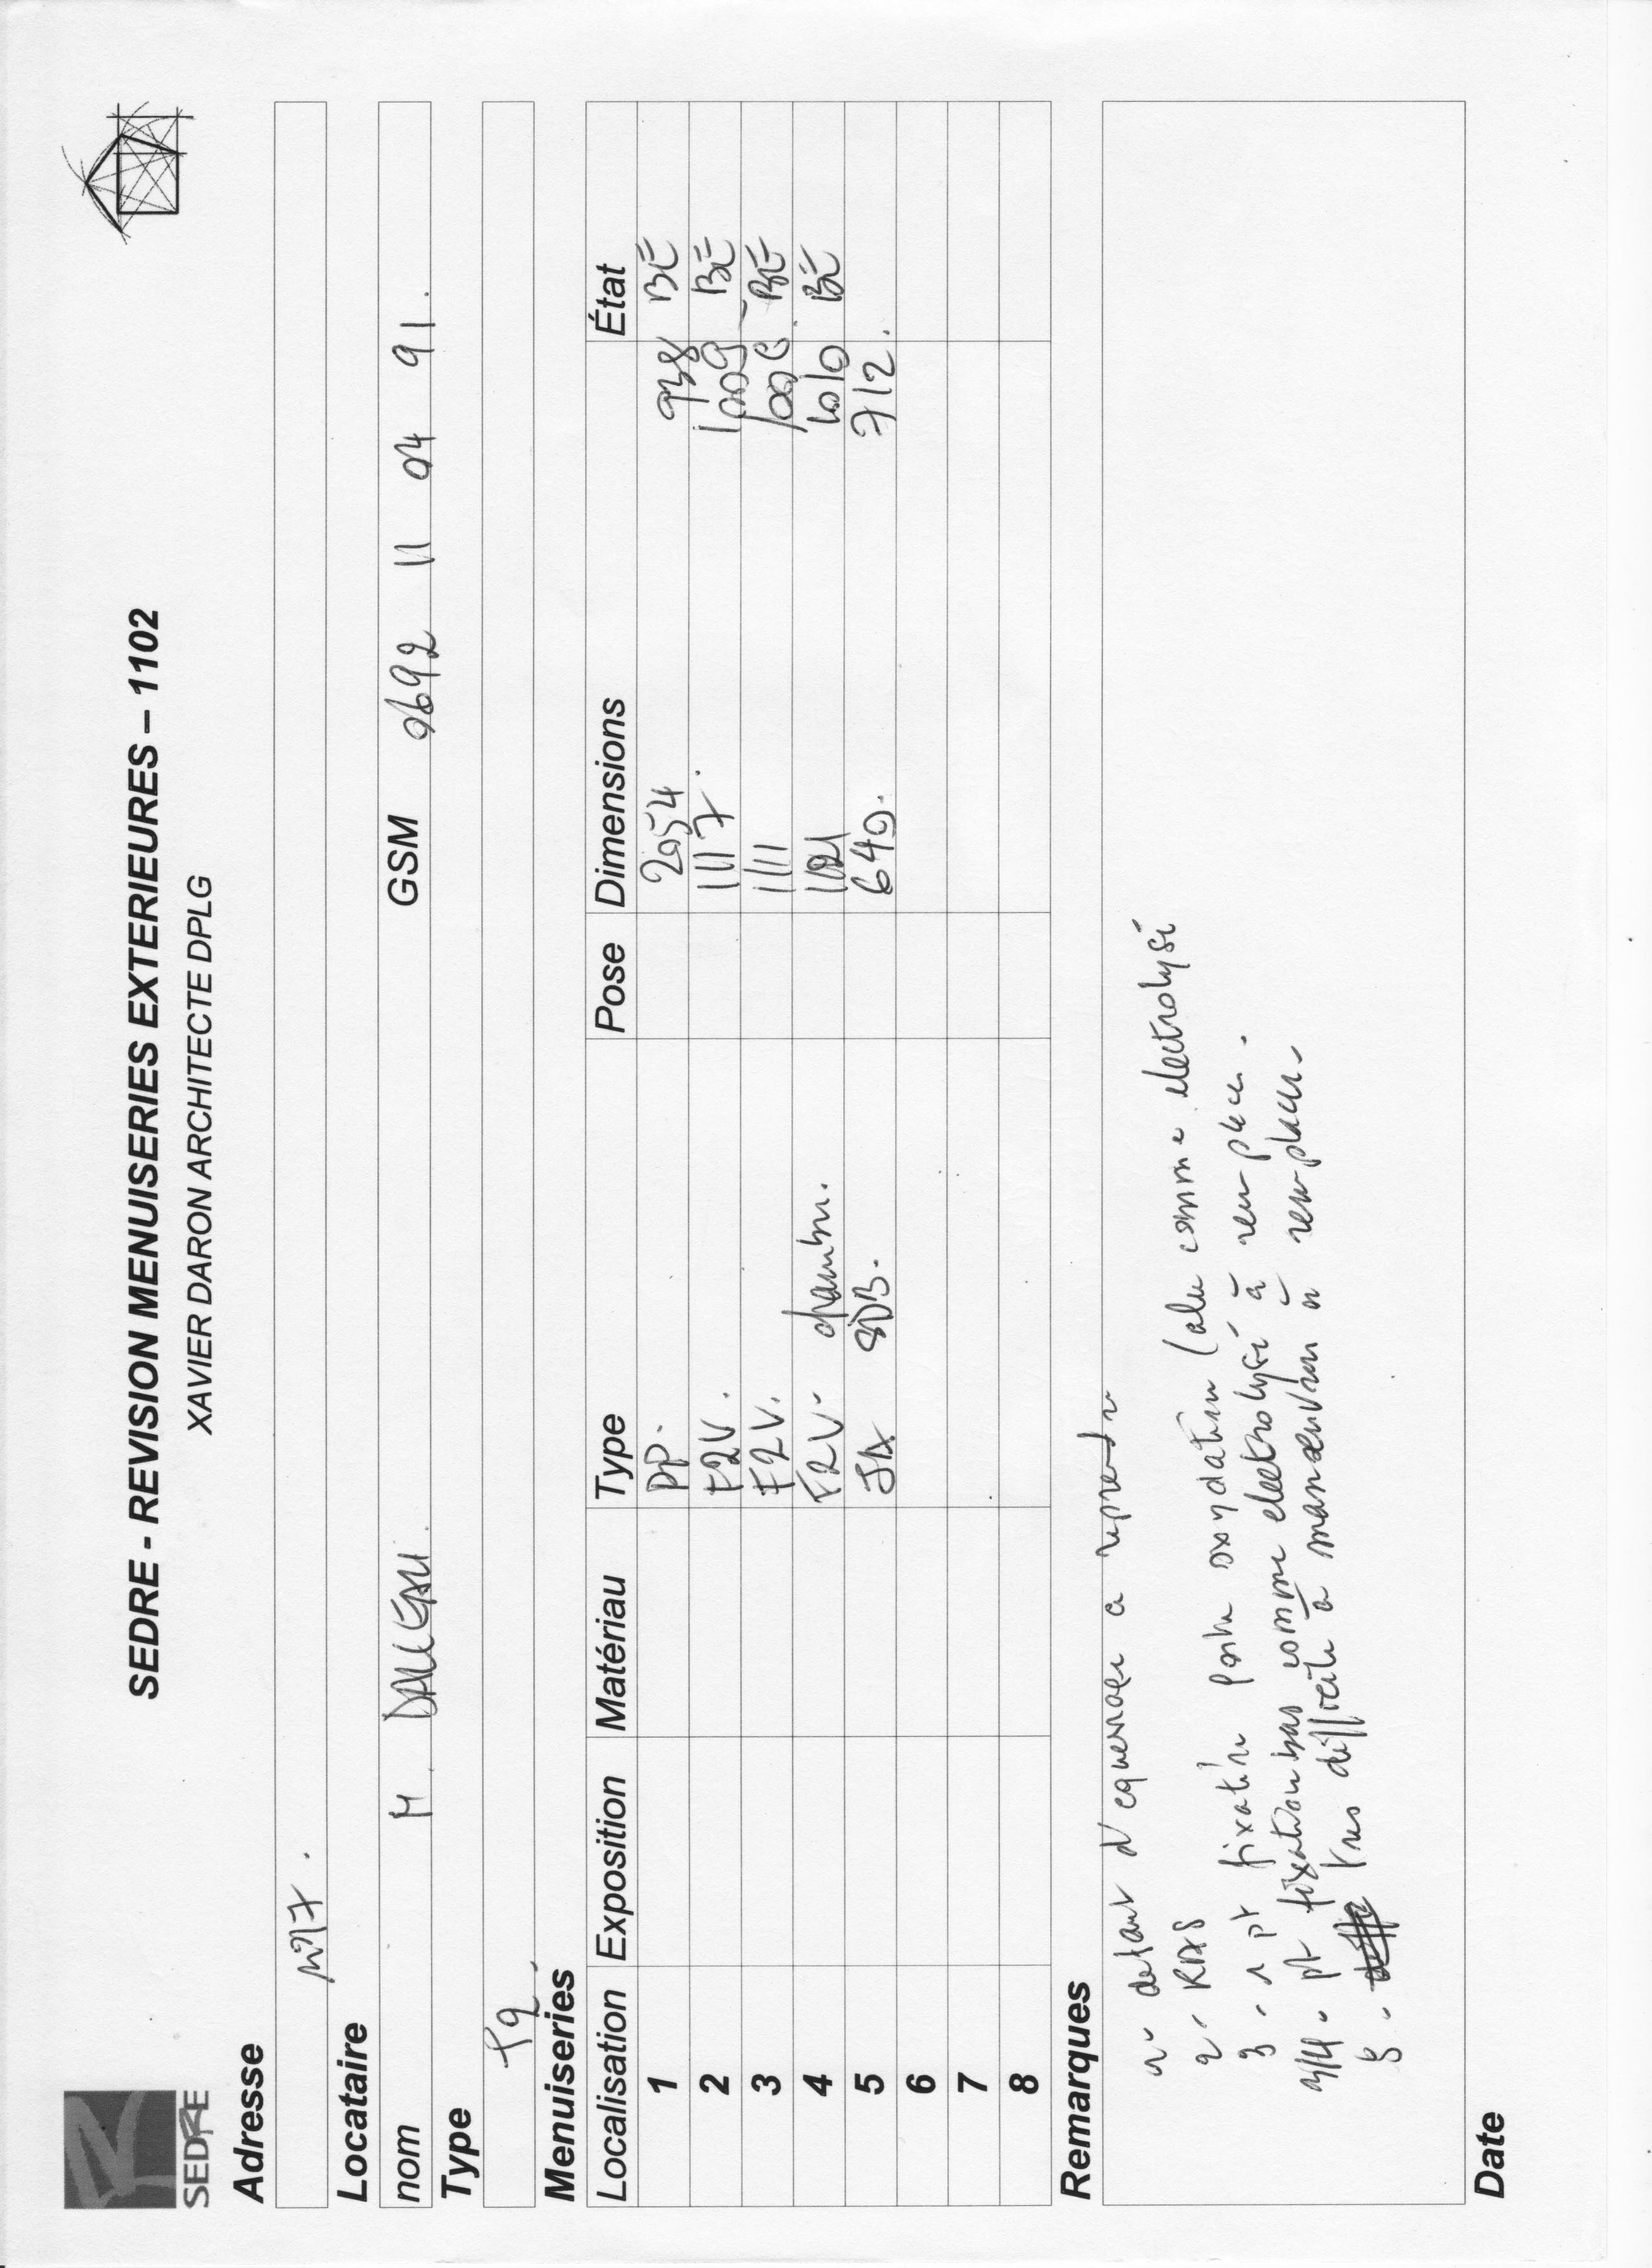 SEDRE
SEDRE - REVISION MENUISERIES EXTERIEURES – 1102
XAVIER DARON ARCHITECTE DPLG
Adresse
n°17.
Locataire
nom M. DALLEAU. GSM 0692 11 04 91.
Type
T2
Menuiseries
Localisation Exposition Matériau Type Pose Dimensions État
1 PP. 2054 938 BE
2 F2V. 1117. 1009 BE
3 F2V. 1111 BE
4 F2V. chambre. 1010 BE
5 JA SDB. 640. 712.
6
7
8
Remarques
1- defaut d'equerrage a reprendre
2- RAS
3- 1 pt fixation oxydation (alu comme electrolysé
3/4- pt fixation bas comme electrolysé à remplacer.
5- tres difficile à manœuvrer à remplacer.
Date